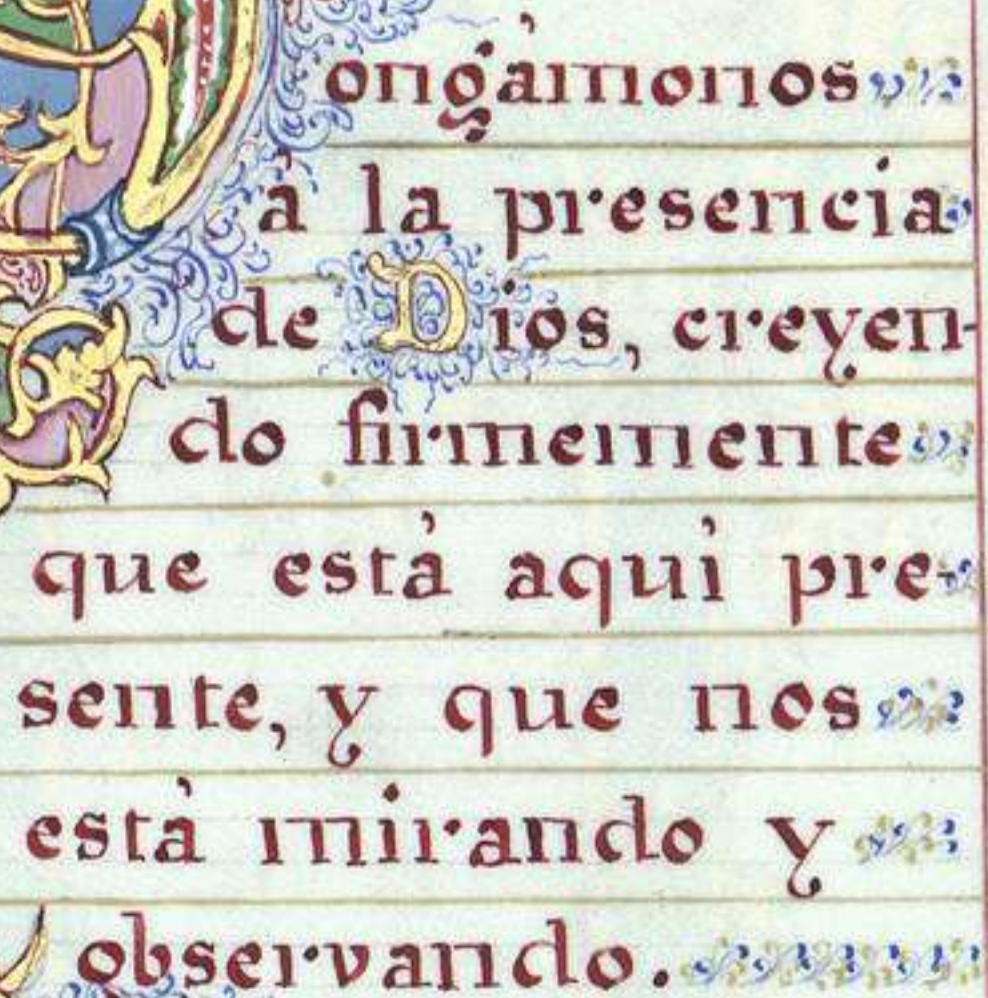 ongámonos
á la presencia
de Dios, creyen-
do firmemente
que está aquí pre-
sente, y que nos
está mirando y
observando.